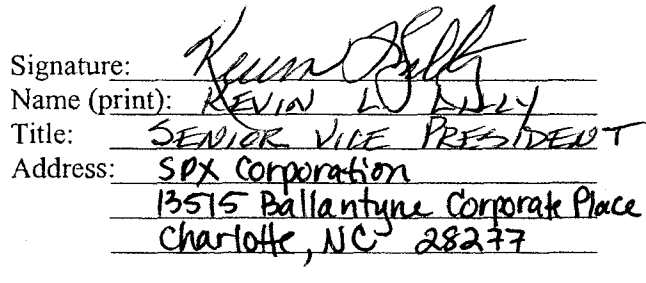 Signature: Kevin L Lilly
Name (print): KEVIN L. LILLY
Title: SENIOR VICE PRESIDENT
Address: SPX Corporation
13515 Ballantyne Corporate Place
Charlotte, NC 28277